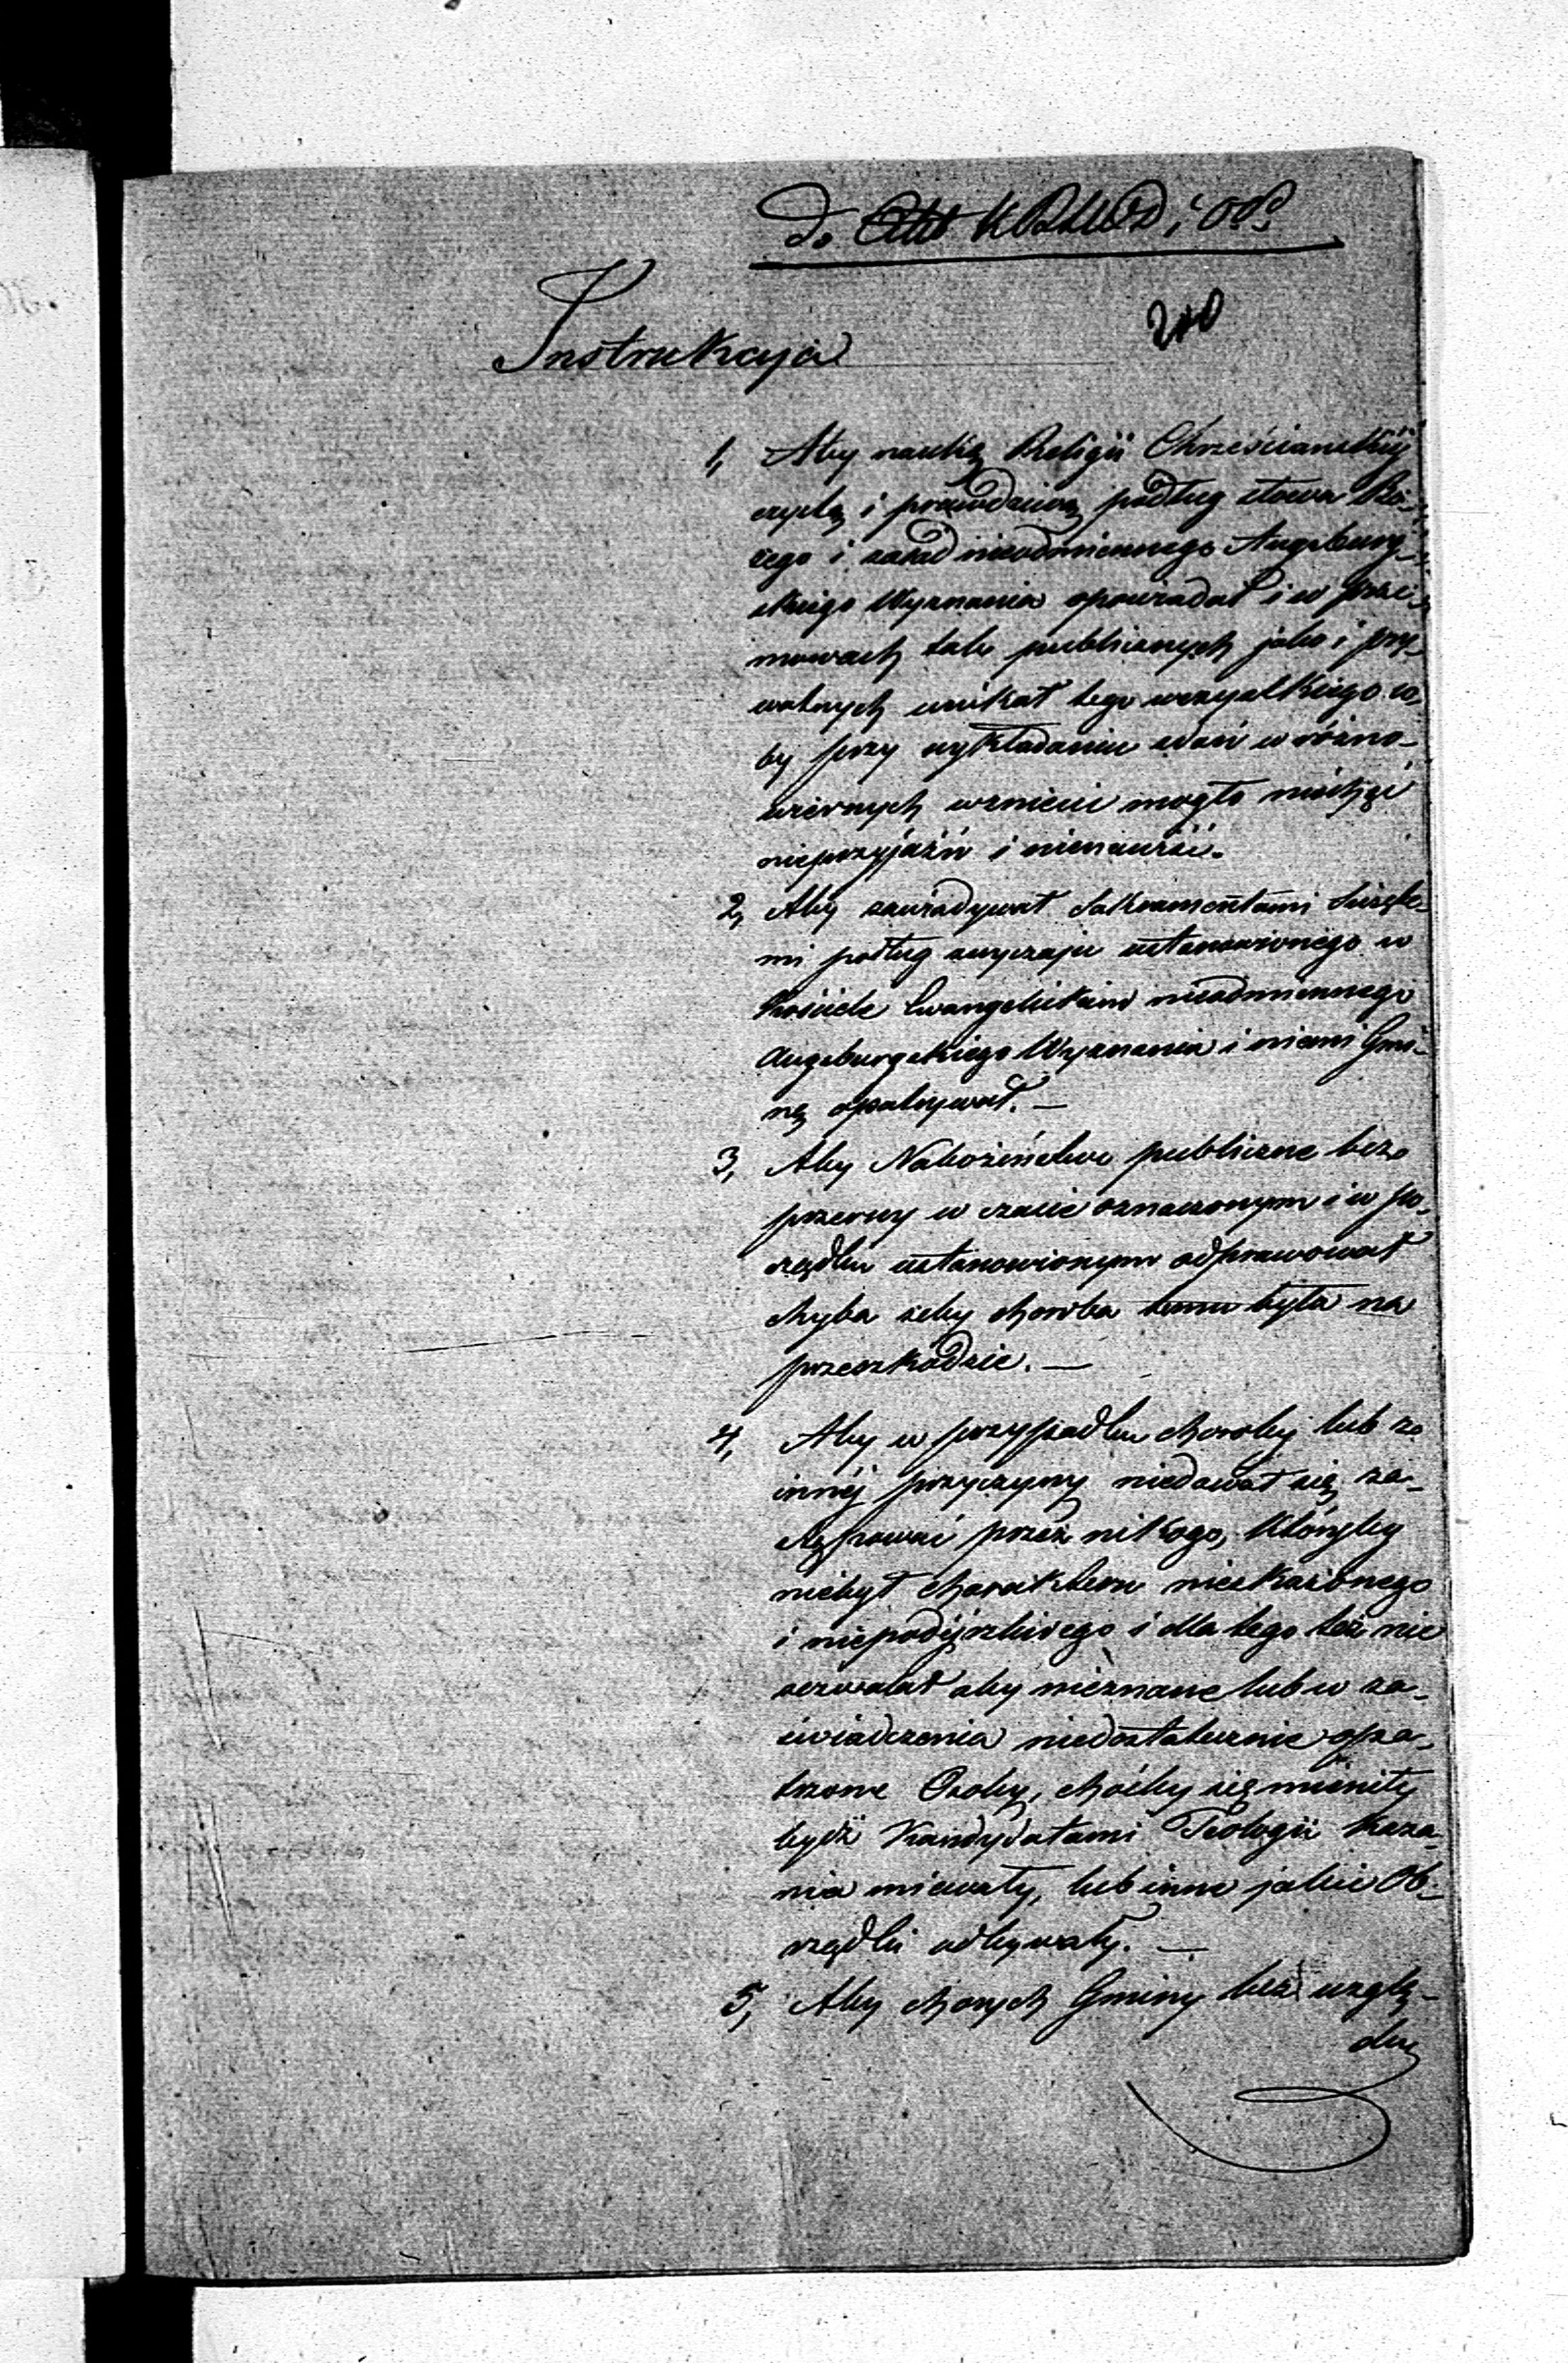 do
200
Instrukcyja
1, Aby naukę Religii Chrześcianskiéj
czystą i prawdziwą podług słowa Bo-
żego i zasad nieodmiennego Augsburg-
skiego Wyznania opowiadał i w prze-
mowach tak publicznych jako i pry-
watnych unikał tego wszystkiego co
by przy wykładaniu zdań w różno-
wiernych wzniecić mogło niechęć
nieprzyjaźń i nienawiść.
2, Aby zawiadywał Sakramentami Święte-
mi podług zwyczaju ustanowionego w
Kościele Ewangelickim nieodmiennego
Augsburgskiego Wyznania i niemi Gmi-
nę opatrywał. —
3, Aby Nabożeństwo publiczne bez
przerwy w czasie oznaczonym i w po-
rządku ustanowionym odprawował
chyba żeby choroba temu była na
przeszkodzie. —
4, Aby w przypadku choroby lub z
innéj przyczyny niedawał się za-
stępować przez nikogo, któryby
niebył charakteru nieskażonego
i niepodéjrzliwego i dla tego też nie
zezwalał aby nieznane lub w za-
świadczenia niedostatecznie opa-
trzone Osoby, choćby się mieniły
bydź Kandydatami Teologii kaza-
nia miewały, lub inne jakie Ob-
rządki odbywały. —
5, Aby chorych Gminy bez wzglę-
du